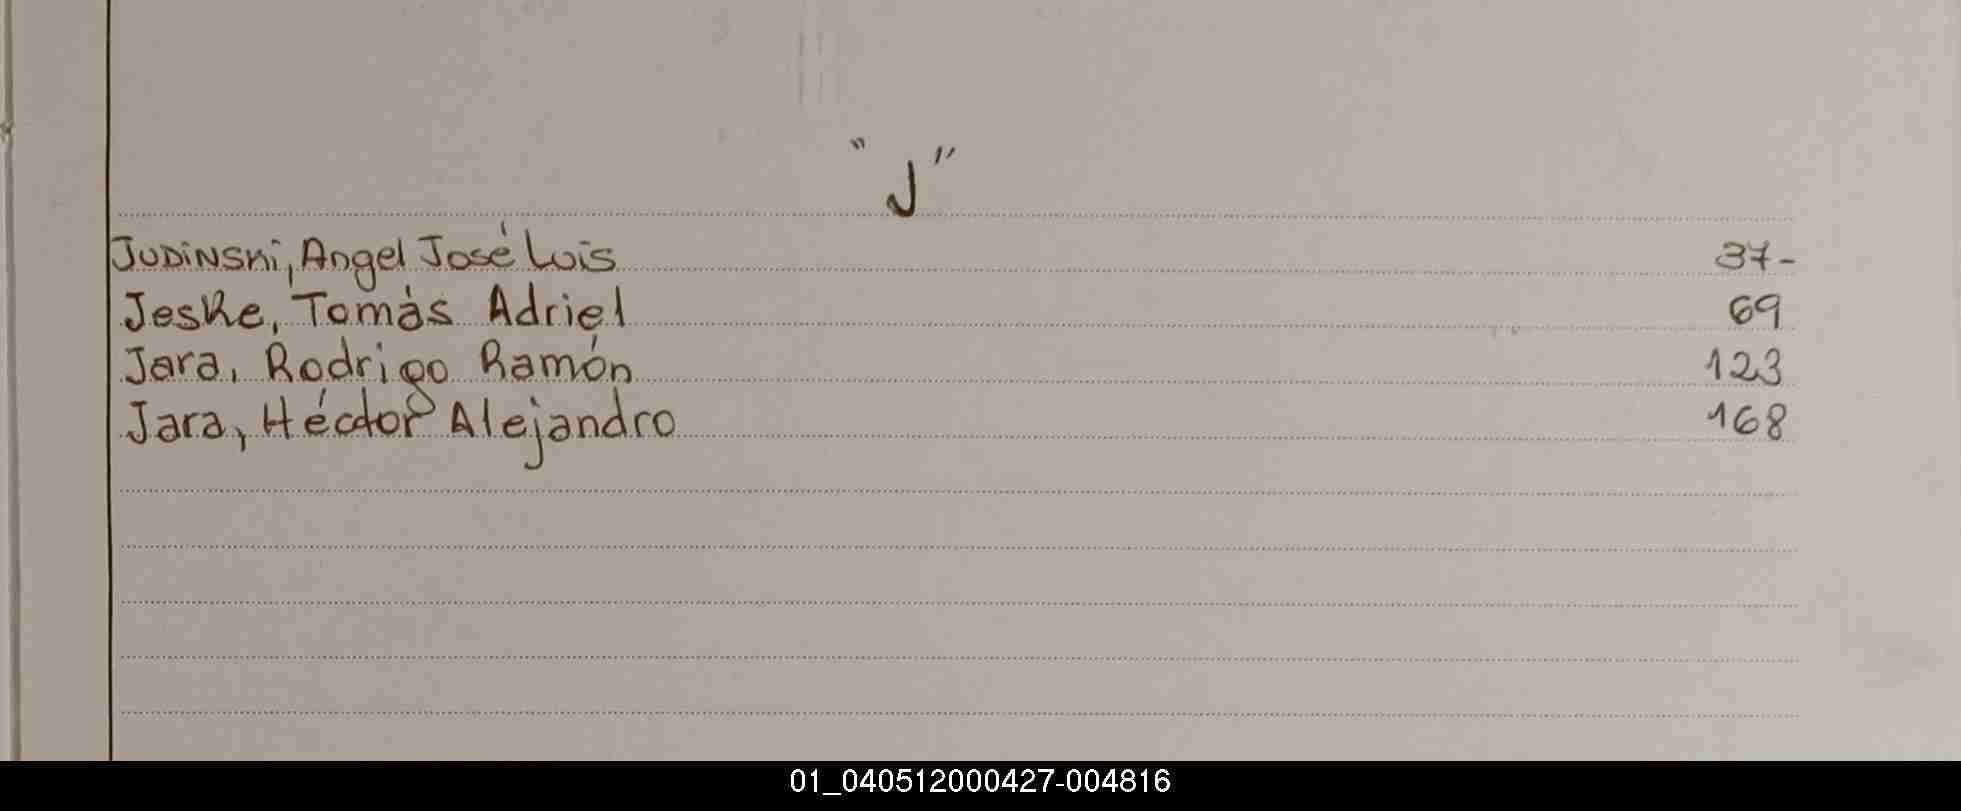 "J"
JUDiNSki, Angel José Luis 37-
Jeske, Tomás Adriel 69
Jara, Rodrigo Ramón 123
Jara, Héctor Alejandro 168
01_040512000427-004816